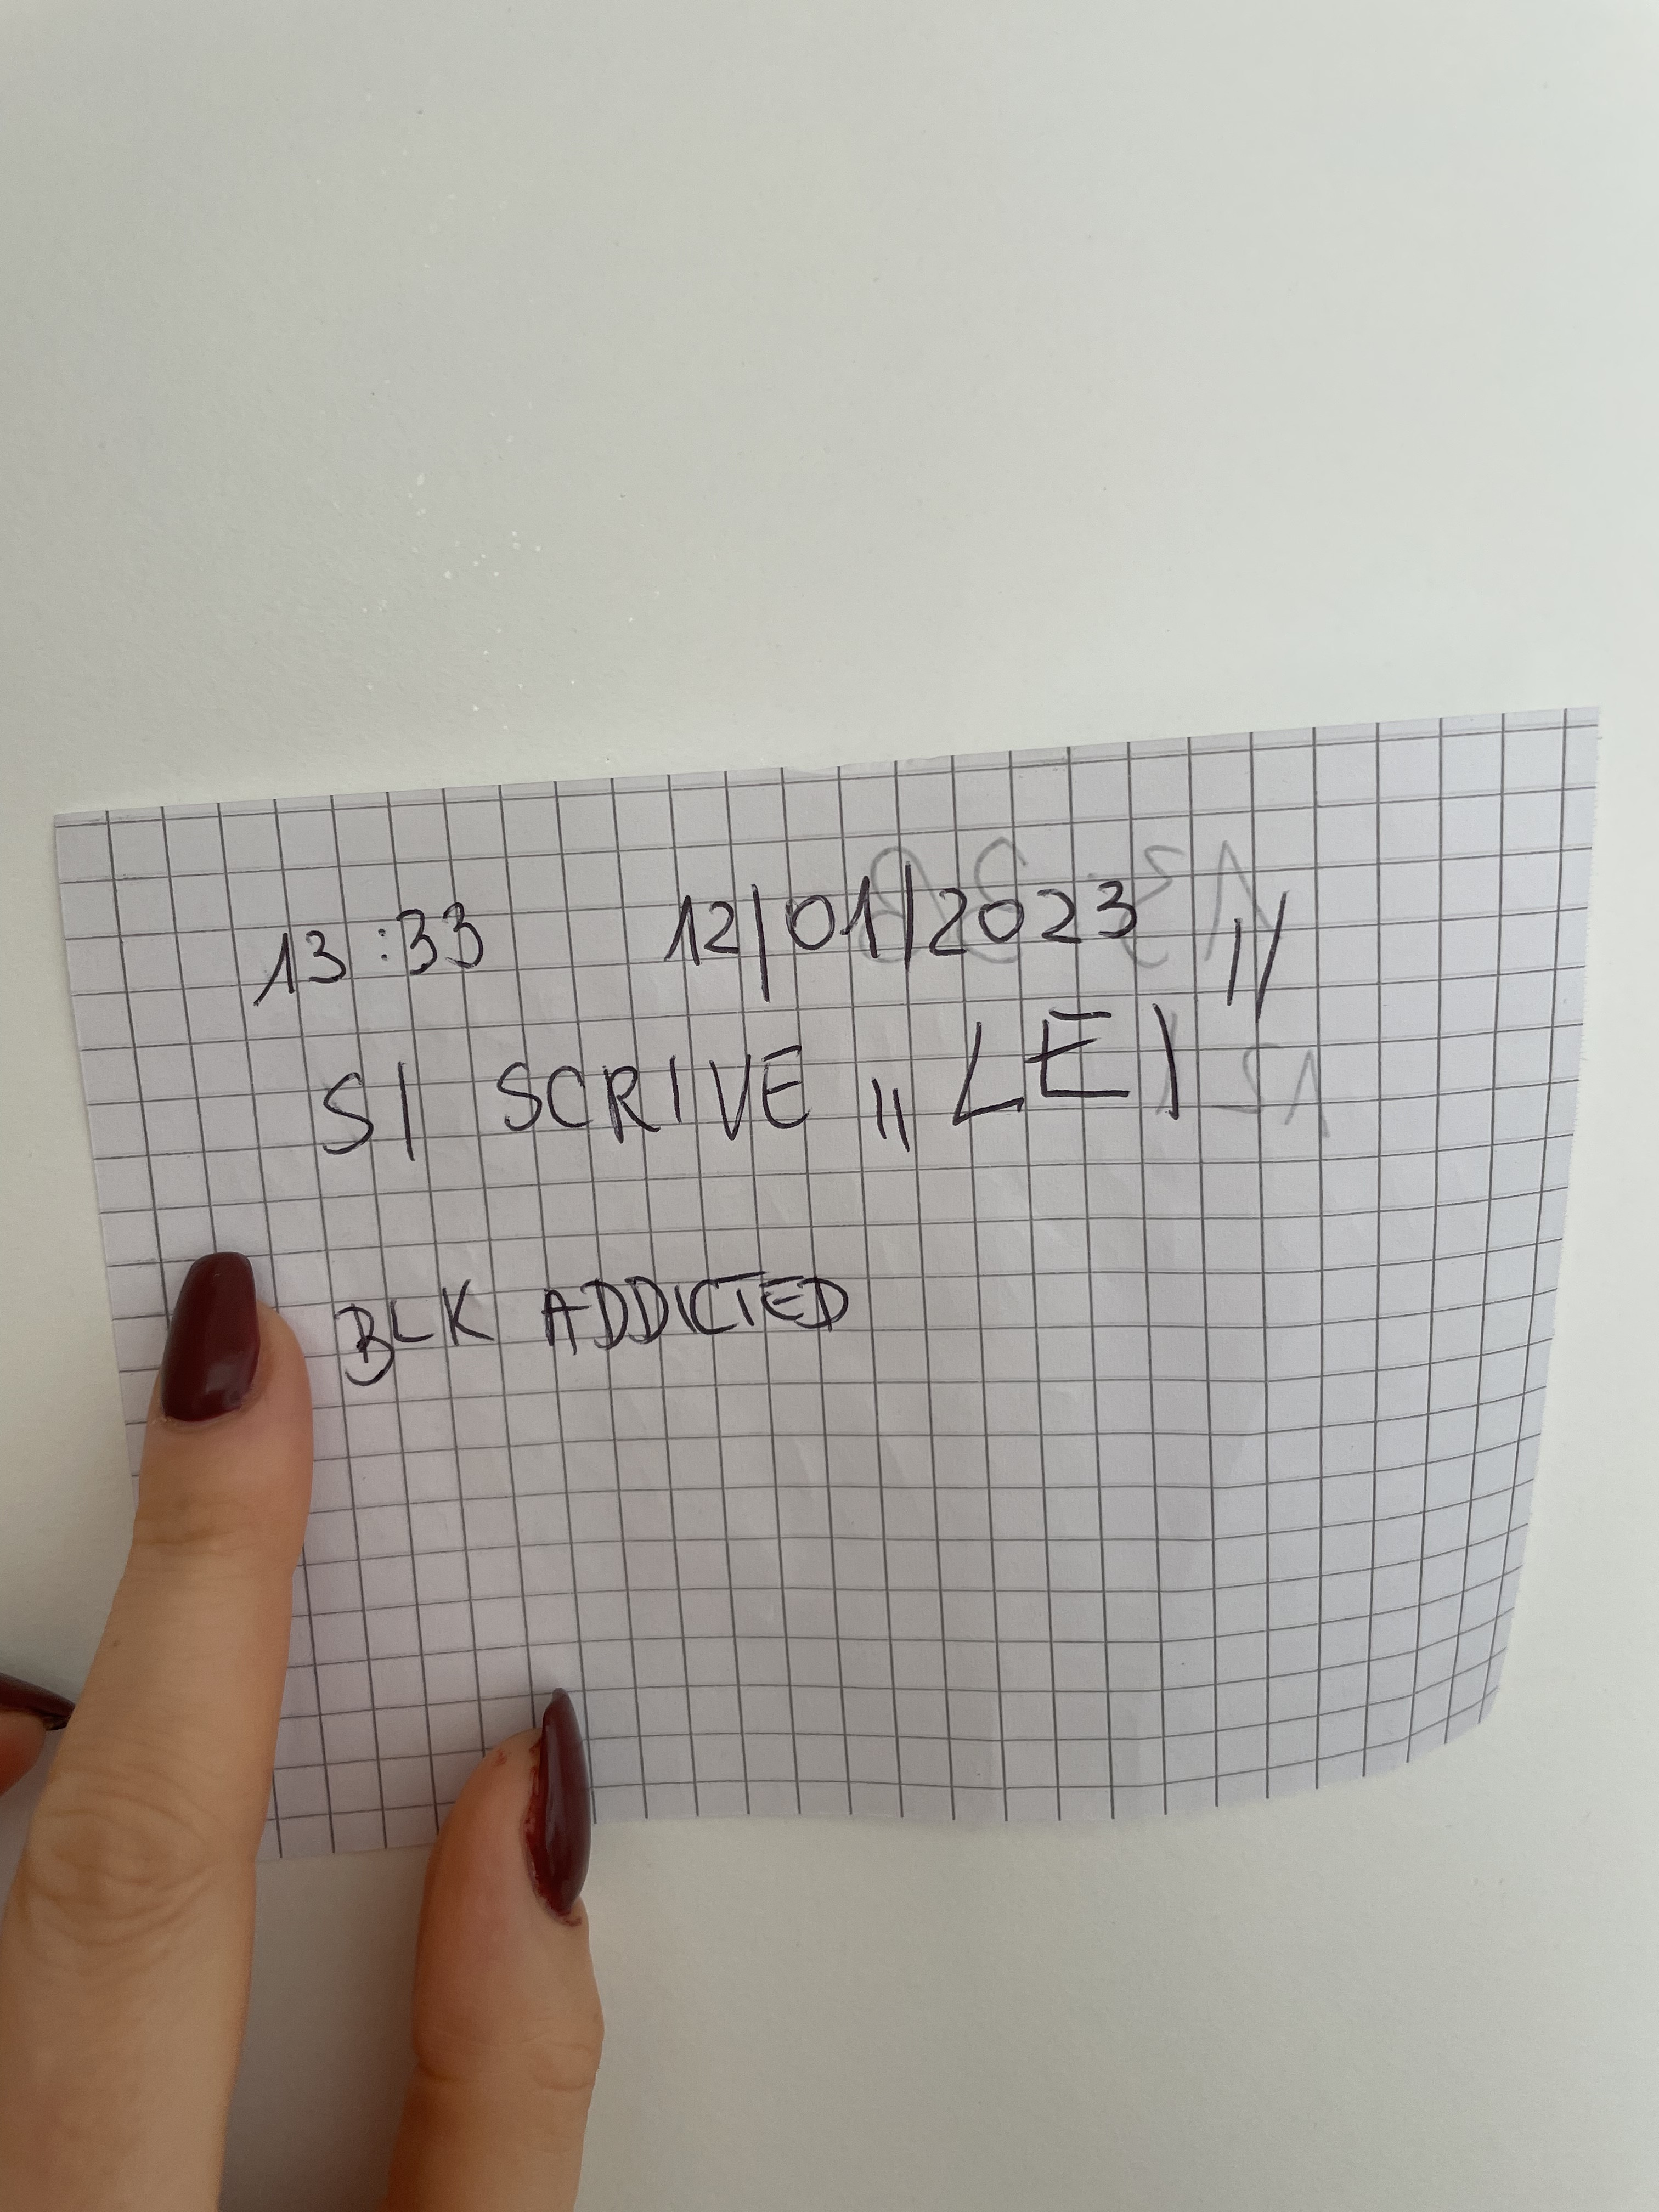 13:33 12/01/2023
SI SCRIVE „LEI”
BLK ADDICTED